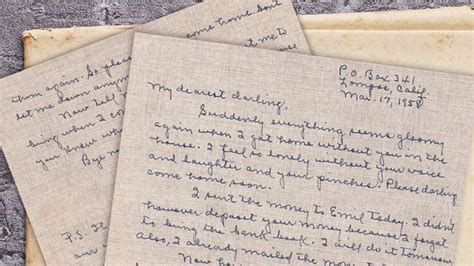 come home Don't
them again. So please
me to
let me down anymore
Now tell
bring when I co
you know wh
Bye n
P.S. It
P.O. Box 341
Lompoc, Calif.
Mar. 17, 1958
My dearest darling.
Suddenly everything seems gloomy
again when I got home without you in the
house. I feel so lonely without your voice
and laughter and your pinches. Please darling
come home soon.
I sent the money to Emil today. I didn't
however deposit your money because I forgot
to bring the bank book. I will do it tomorrow
Also, I already mailed the money to
Now ho